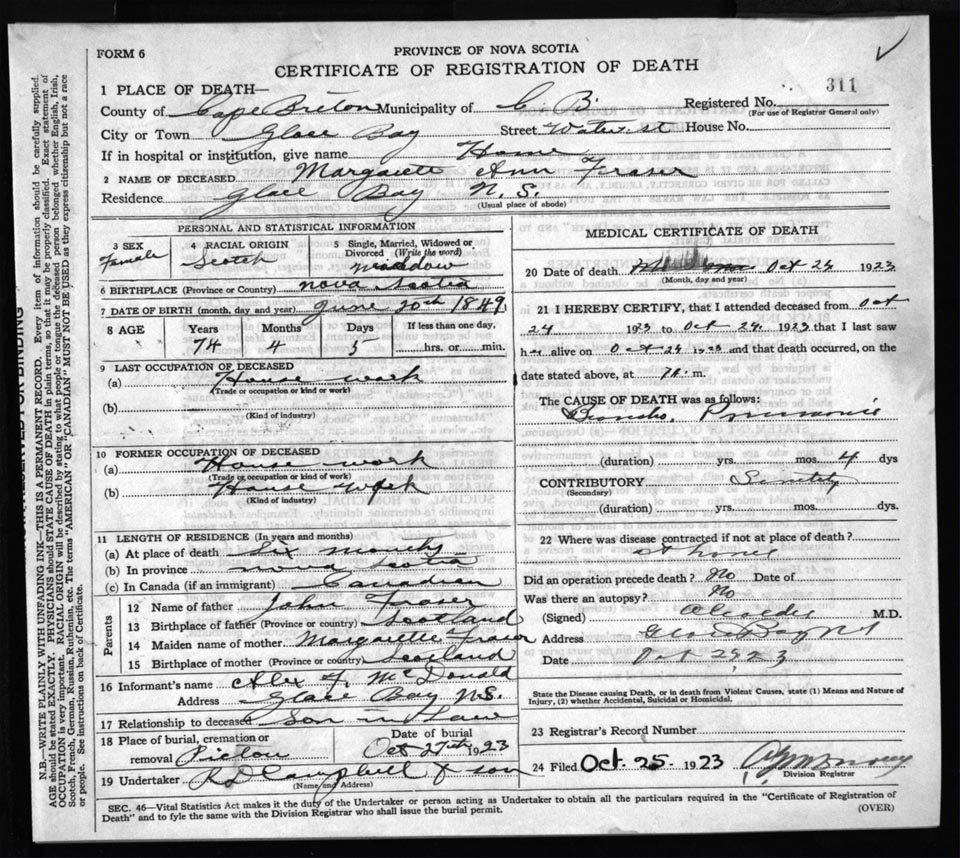 FORM 6
PROVINCE OF NOVA SCOTIA
CERTIFICATE OF REGISTRATION OF DEATH
311
1 PLACE OF DEATH—
County of Cape Breton Municipality of C. B. Registered No.
(For use of Registrar General only)
City or Town Glace Bay Street Water st House No.
If in hospital or institution, give name Home
2 NAME OF DECEASED Margarett Ann Fraser
Residence Glace Bay N. S.
(Usual place of abode)
PERSONAL AND STATISTICAL INFORMATION
3 SEX
Female
4 RACIAL ORIGIN
Scotch
5 Single, Married, Widowed or Divorced (Write the word)
widdow
6 BIRTHPLACE (Province or Country) Nova Scotia
7 DATE OF BIRTH (month, day and year) June 20th 1849
8 AGE Years Months Days If less than one day,
74 4 5 hrs. or min.
9 LAST OCCUPATION OF DECEASED
(a) House work
(Trade or occupation or kind or work)
(b)
(Kind of industry)
10 FORMER OCCUPATION OF DECEASED
(a) House work
(Trade or occupation or kind of work)
(b) House work
(Kind of industry)
11 LENGTH OF RESIDENCE (In years and months)
(a) At place of death Six months
(b) In province Nova Scotia
(c) In Canada (if an immigrant) Canadian
Parents
12 Name of father John Fraser
13 Birthplace of father (Province or country) Scotland
14 Maiden name of mother Margarette Fraser
15 Birthplace of mother (Province or country) Scotland
16 Informant's name Alex F. McDonald
Address Glace Bay N.S.
17 Relationship to deceased Son in Law
18 Place of burial, cremation or removal Pictou
Date of burial Oct 27th 1923
19 Undertaker Campbell & son
(Name and Address)
MEDICAL CERTIFICATE OF DEATH
20 Date of death Oct 24 1923
(Month, day and year)
21 I HEREBY CERTIFY, that I attended deceased from Oct
24 1923 to Oct 24, 1923 that I last saw
her alive on Oct 24 1923 and that death occurred, on the
date stated above, at m.
The CAUSE OF DEATH was as follows:
Broncho Pneumonia
(duration) yrs. mos. 4 dys
CONTRIBUTORY Senility
(Secondary)
(duration) yrs. mos. dys.
22 Where was disease contracted if not at place of death?
at home
Did an operation precede death? No Date of
Was there an autopsy? No
(Signed) M.D.
Address Glace Bay NS
Date Oct 1923
State the Disease causing Death, or in death from Violent Causes, state (1) Means and Nature of Injury, (2) whether Accidental, Suicidal or Homicidal.
23 Registrar's Record Number
24 Filed Oct. 25. 1923
Division Registrar
SEC. 46—Vital Statistics Act makes it the duty of the Undertaker or person acting as Undertaker to obtain all the particulars required in the "Certificate of Registration of
Death" and to fyle the same with the Division Registrar who shall issue the burial permit.
(OVER)
RESERVED FOR BINDING
N.B.—WRITE PLAINLY WITH UNFADING INK—THIS IS A PERMANENT RECORD. Every item of information should be carefully supplied.
AGE should be stated EXACTLY. PHYSICIANS should STATE CAUSE OF DEATH in plain terms, so that it may be properly classified. Exact statement of
OCCUPATION is very important. RACIAL ORIGIN will be described by stating to what people or tongue the deceased person belonged whether English, Irish,
Scotch, French, German, Russian, Ruthenian, etc. The terms "AMERICAN" OR "CANADIAN" MUST NOT BE USED as they express citizenship but not a race
or people. See instructions on back of Certificate.